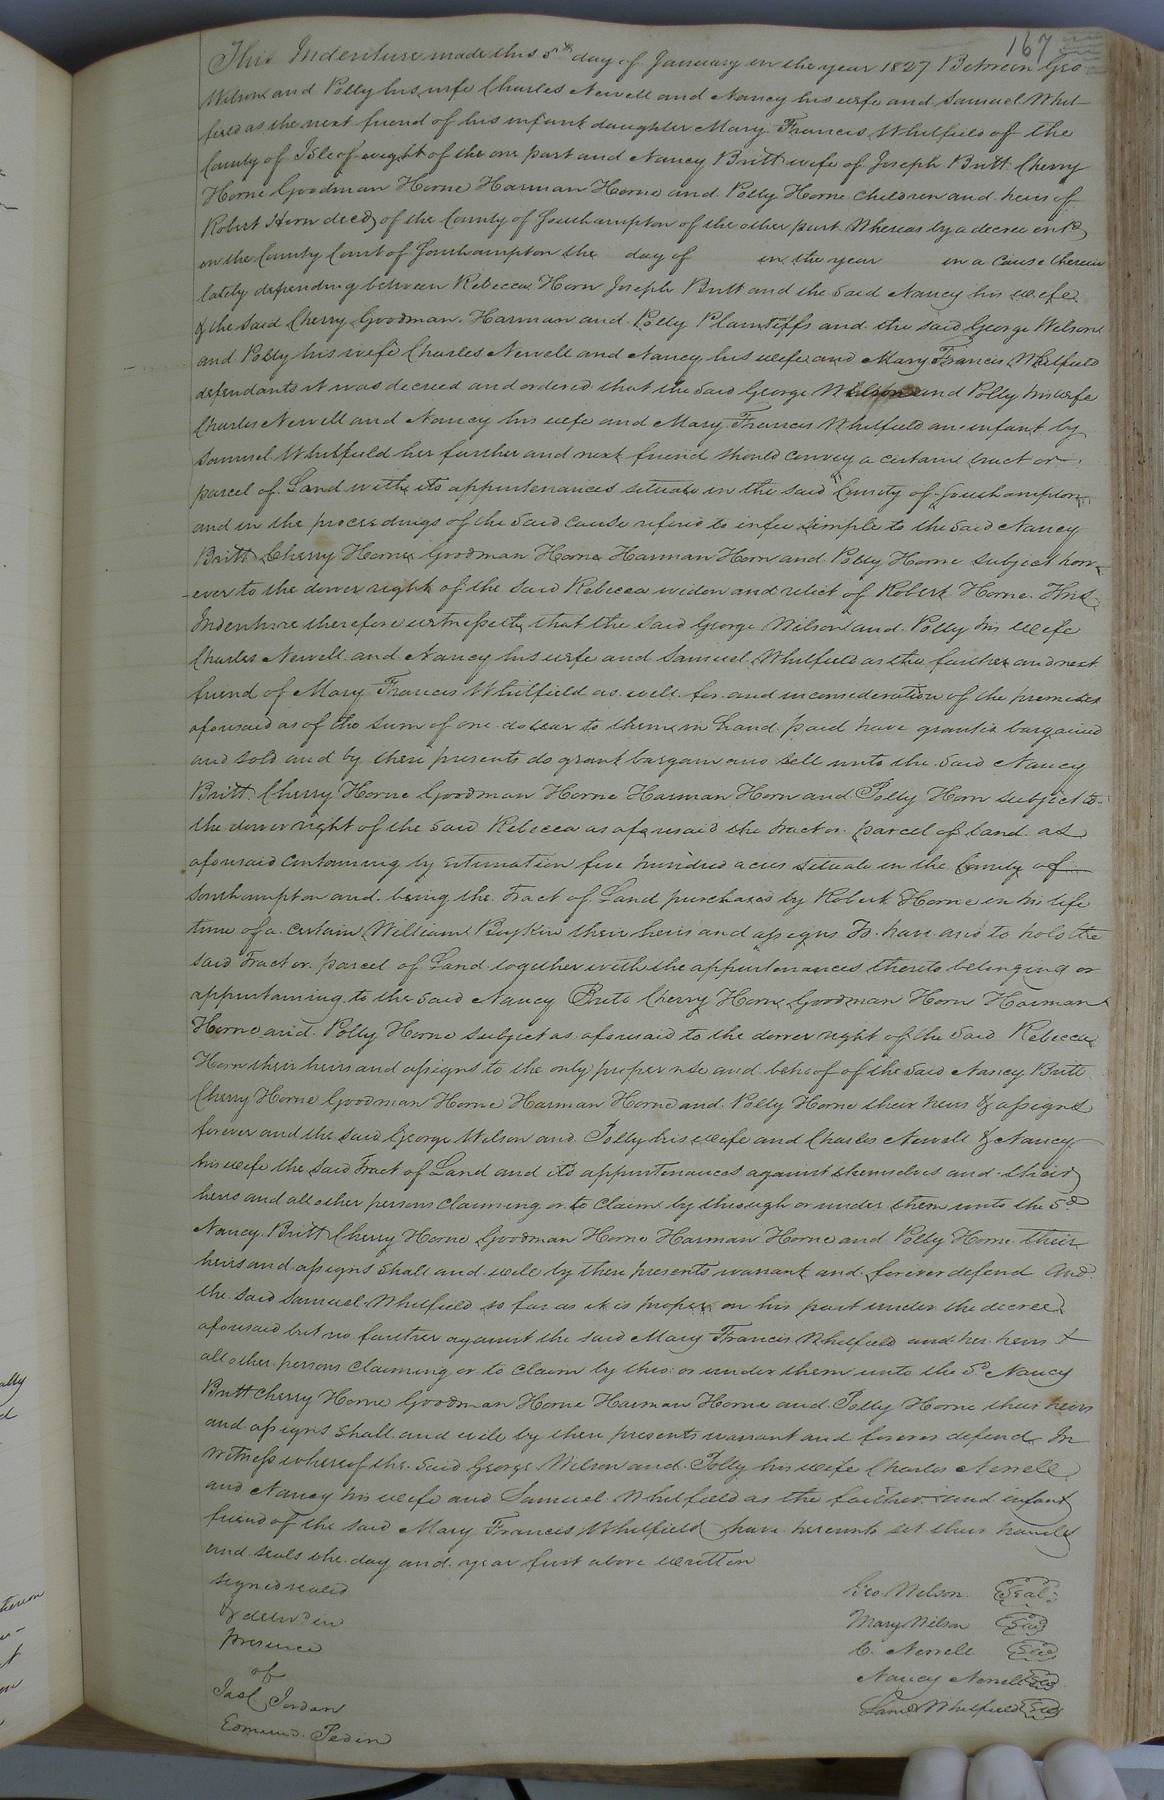 167
This Indenture made this 5th day of January in the year 1827 Between Geo
Wilson and Polly his wife Charles Newell and Nancy his wife and Samuel Whit-
field as the next friend of his infant daughter Mary Francis Whitfield of the
County of Isle of wight of the one part and Nancy Britt wife of Joseph Britt Cherry
Horne Goodman Horne Harman Horne and Polly Horne children and heirs of
Robert Horn decd of the County of Southampton of the other part Whereas by a decree entd
in the County Court of Southampton the day of in the year in a cause therein
lately depending between Rebecca Horn Joseph Britt and the Said Nancy his wife
& the said Cherry Goodman Harman and Polly Plaintiffs and the said George Wilson
and Polly his wife Charles Newell and Nancy his wife and Mary Francis Whitfield
defendants it was decreed and ordered that the said George Wilson and Polly his wife
Charles Newell and Nancy his wife and Mary Francis Whitfield an infant by
Samuel Whitfield her farther and next friend should convey a certain tract or
parcel of Land with its appurtenances situate in the said County of Southampton
and in the proceedings of the Said cause refered to in fee simple to the Said Nancy
Britt Cherry Horne Goodman Horne Harman Horn and Polly Horne subject how-
-ever to the dower right of the said Rebecca widow and relict of Robert Horne This
Indenture therefore witnesseth that the said George Wilson and Polly his wife
Charles Newell and Nancy his wife and Samuel Whitfield as the farther and next
friend of Mary Francis Whitfield as well for and in consideration of the premises
aforesaid as of the sum of one dollar to them in hand paid have granted bargained
and sold and by these presents do grant bargain and sell unto the Said Nancy
Britt Cherry Horne Goodman Horne Harman Horn and Polly Horn subject to
the dower right of the said Rebecca as aforesaid the tract or parcel of land as
aforesaid containing by estimation five hundred acres situate in the County of
Southampton and being the Tract of Land purchased by Robert Horne in his life
time of a certain William Boykin their heirs and assigns To have and to hold the
said Tract or parcel of Land together with the appurtenances thereto belonging or
appurtaining to the said Nancy Britt Cherry Horne Goodman Horn Harman
Horne and Polly Horne subject as aforesaid to the dower right of the Said Rebecca
Horn their heirs and assigns to the only proper use and behoof of the said Nancy Britt
Cherry Horne Goodman Horne Harman Horne and Polly Horne their heirs & assigns
forever and the said George Wilson and Polly his wife and Charles Newell & Nancy
his wife the said Tract of Land and its appurtenances against themselves and their
heirs and all other persons claiming or to claim by through or under them unto the Sd
Nancy Britt Cherry Horne Goodman Horne Harman Horne and Polly Horne their
heirs and assigns shall and will by these presents warrant and forever defend And
the said Samuel Whitfield so far as it is proper on his part under the decree
aforesaid but no farther against the said Mary Francis Whitfield and her heirs &
all other persons claiming or to claim by thro: or under them unto the Sd Nancy
Britt Cherry Horne Goodman Horne Harman Horne and Polly Horne their heirs
and assigns shall and will by these presents warrant and forever defend In
witness whereof the Said George Wilson and Polly his wife Charles Newell
and Nancy his wife and Samuel Whitfield as the farther and infant
friend of the said Mary Francis Whitfield have hereunto set their hands
and seals the day and year first above written
Signed sealed
& delivd in
presence
of
Jas L. Jordan
Edmund Pedin
Geo Wilson Seal
Mary Wilson Seal
C. Newell Seal
Nancy Newell Seal
Saml Whitfield Seal